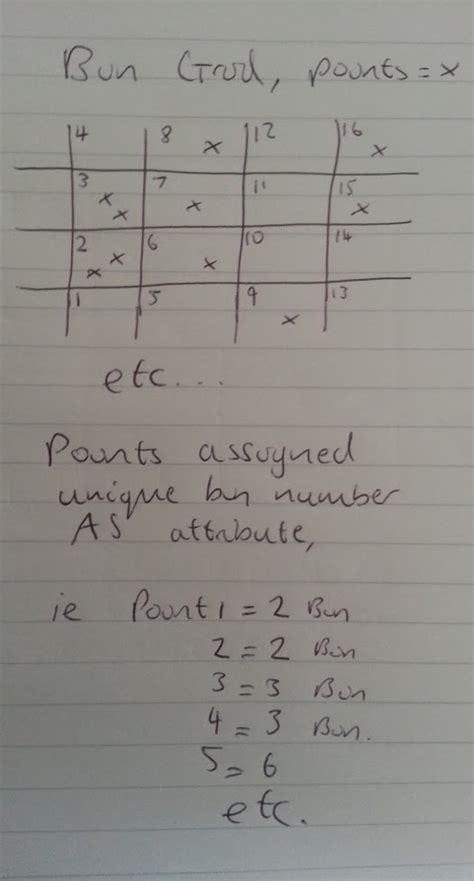 Bin Grid, points = x
4 8 x 12 16 x
3 x x 7 x 11 15 x
2 x x 6 x 10 14
1 5 9 x 13
etc....
Points assigned
unique bin number
AS attribute,
ie Point 1 = 2 Bin
2 = 2 Bin
3 = 3 Bin
4 = 3 Bin.
5 = 6
etc.